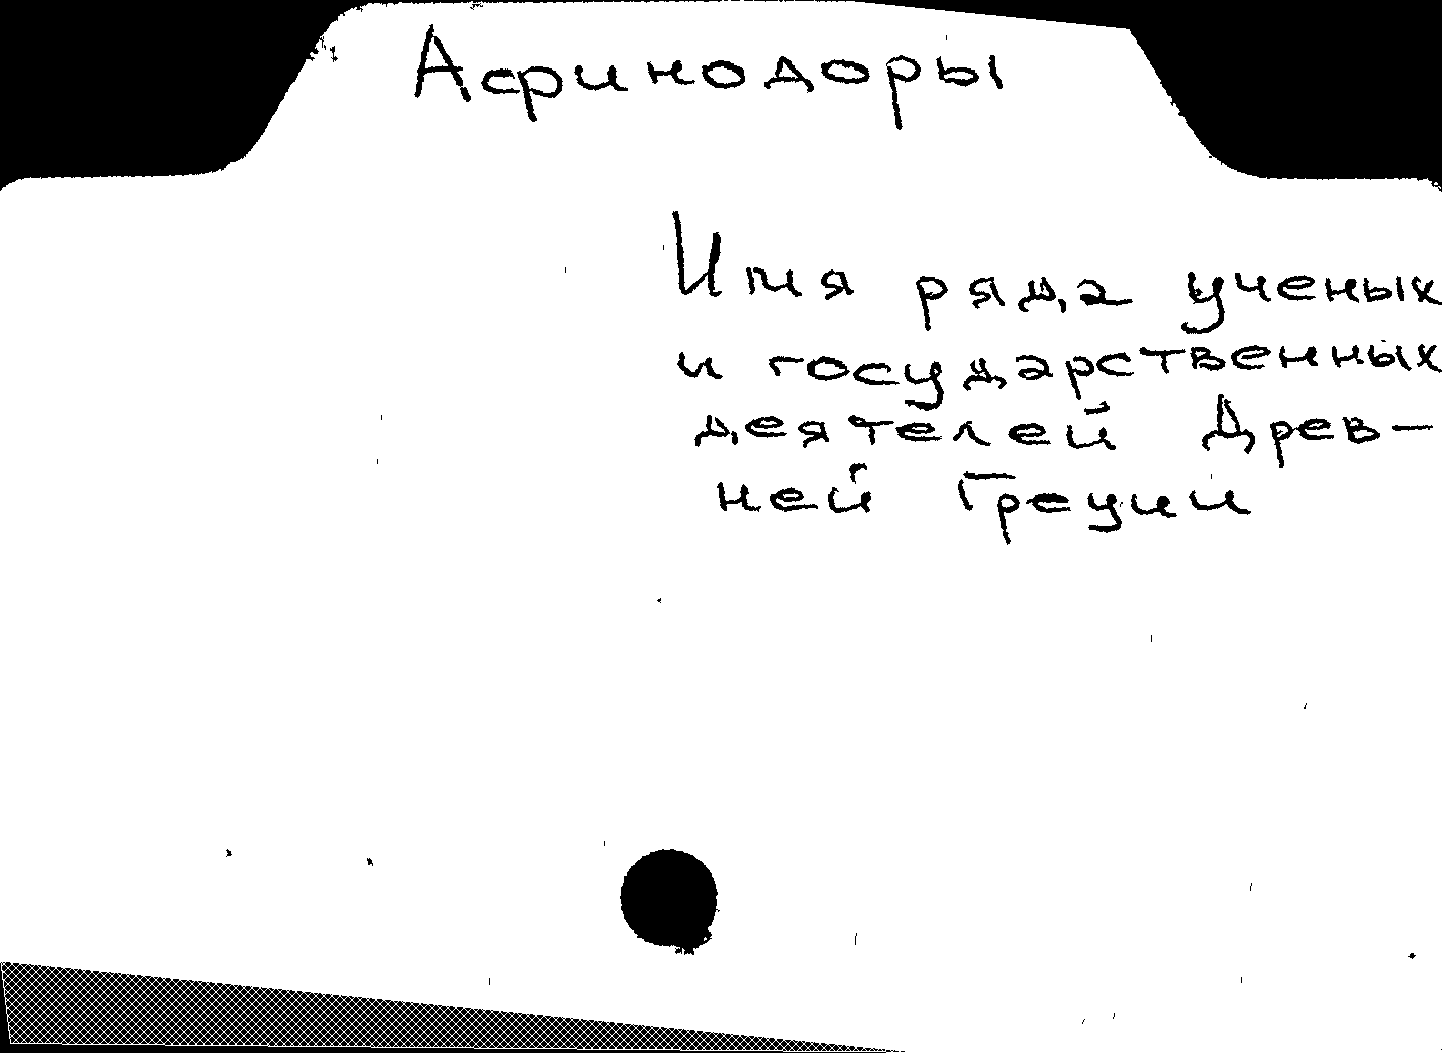 Афинодоры
Имя ряда ученых
и государственных
деятелей Древ-
ней Греции